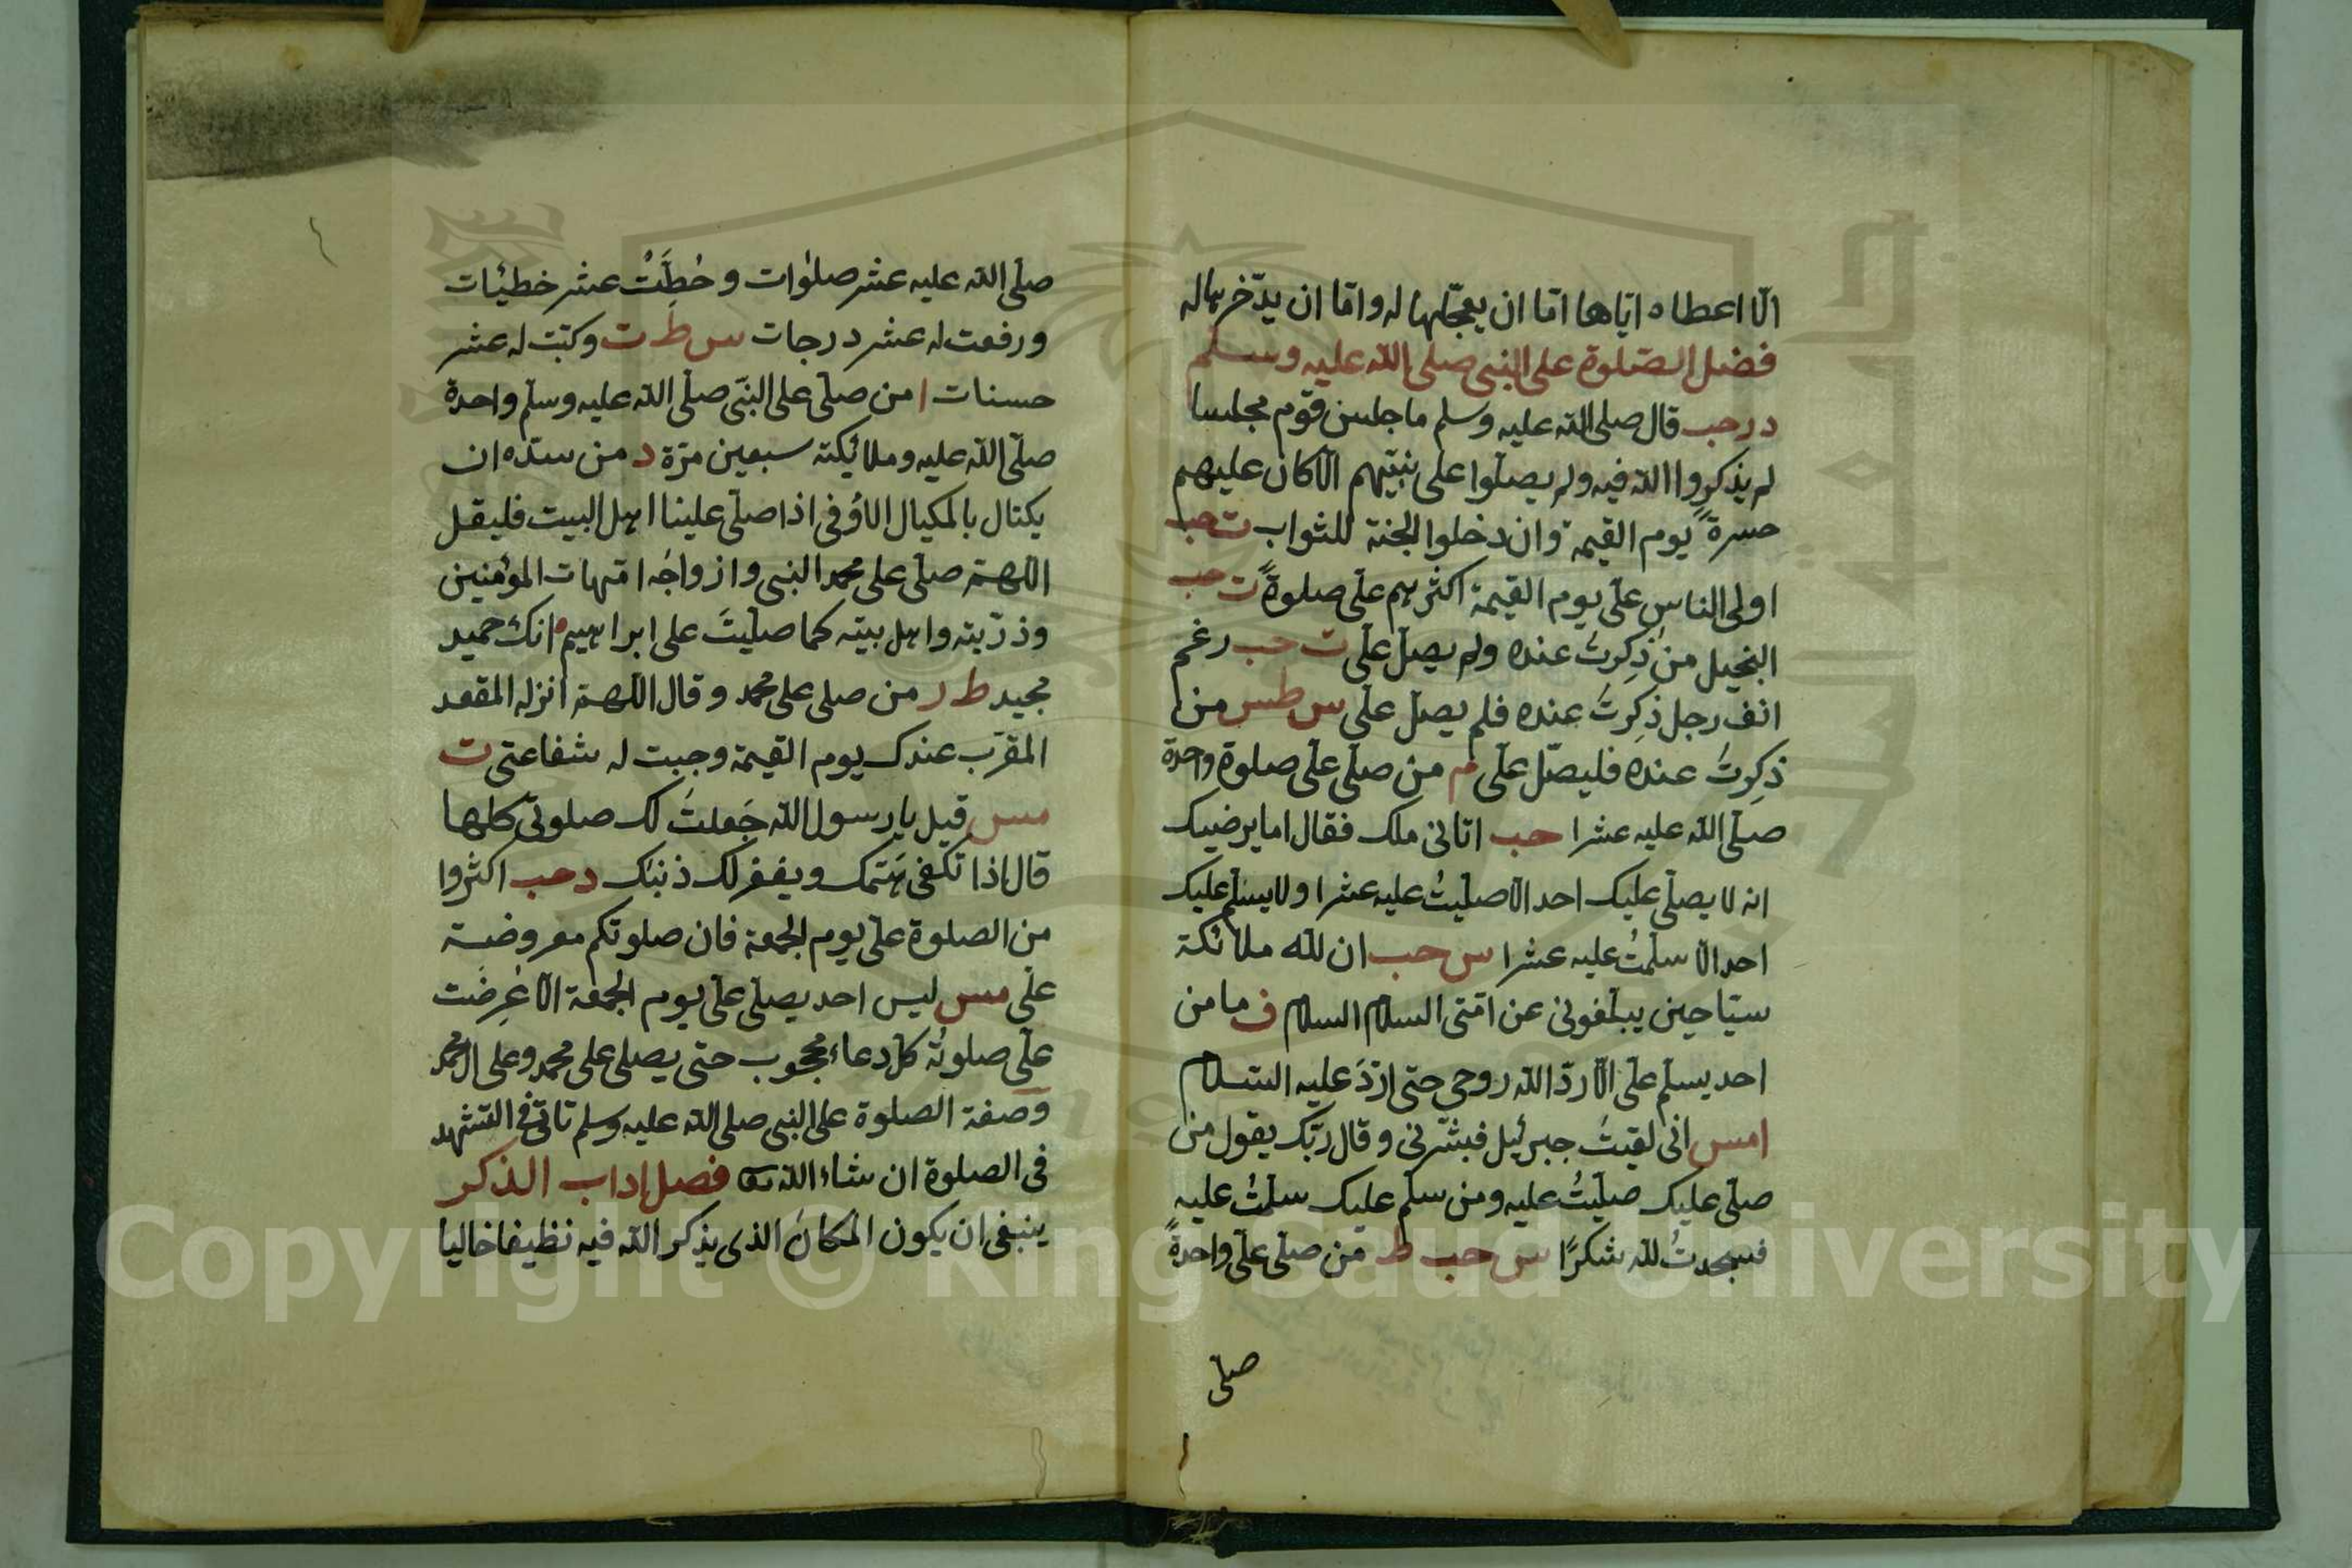 الّا اعطاه ايّاها امّا ان يعجّلها له وامّا ان يدّخرها له
فضل الصّلوة على النبى صلى الله عليه وسلم
د ر حب قال صلى الله عليه وسلم ما جلس قوم مجلسا
لم يذكروا الله فيه ولم يصلّوا على نبيّهم الّا كان عليهم
حسرةً يوم القيمة وان دخلوا الجنة للثواب ت حب
اولى الناس علىّ يوم القيمة اكثرهم علىّ صلوةً ت حب
البخيل من ذُكِرتُ عنده ولم يصلّ علىّ ت حب رغم
انف رجل ذُكِرتُ عنده فلم يصلّ علىّ س طس من
ذُكِرتُ عنده فليصلّ علىّ م من صلّى علىّ صلوة واحدة
صلّى الله عليه عشرا حب اتانى ملك فقال اما يرضيك
انه لا يصلّى عليك احد الّا صلّيتُ عليه عشرا ولا يسلّم عليك
احد الّا سلّمتُ عليه عشرا س حب ان لله ملائكة
سيّاحين يبلّغونى عن امّتى السلام السلام ف ما من
احد يسلّم علىّ الّا ردّ الله روحى حتى اردّ عليه السّلام
امس انى لقيتُ جبرئيل فبشّرنى وقال ربّك يقول من
صلّى عليك صلّيتُ عليه ومن سلّم عليك سلّمتُ عليه
فسجدتُ لله شكرًا س حب ط من صلّى علىّ واحدةً
صلّى
صلّى الله عليه عشر صلوات وحُطِّتْ عشر خطيئات
ورفعت له عشر درجات س ط ت وكتبت له عشر
حسنات ا من صلّى على النبّى صلّى الله عليه وسلم واحدة
صلّى الله عليه وملائكته سبعين مرّة د من سرّه ان
يكتال بالمكيال الاوُفى اذا صلّى علينا اهل البيت فليقل
اللّهمّ صلّى على محمد النبى وازواجه امّهات المؤمنين
وذرّيته واهل بيته كما صلّيتَ على ابراهيم انك حميد
مجيد ط ر من صلى على محمد وقال اللّهمّ انزله المقعد
المقرّب عندك يوم القيمة وجبت له شفاعتى ت
مس قيل يا رسول الله جَعلتُ لك صلوتى كلها
قال اذا تكفى همّك ويغفر لك ذنبك د حب اكثروا
من الصلوة علىّ يوم الجمعة فان صلوتكم معروضة
علىّ مس ليس احد يصلّى علىّ يوم الجمعة الّا عُرِضَت
علىّ صلوتُه كلّ دعاء محجوب حتى يصلى على محمد وعلى ال محمد
وصفة الصلوة على النبى صلى الله عليه وسلم تاتى فى التشهد
فى الصلوة ان شاء الله فصل اداب الذكر
ينبغى ان يكون المكان الذى يذكر الله فيه نظيفا خاليا
Copyright © King Saud University